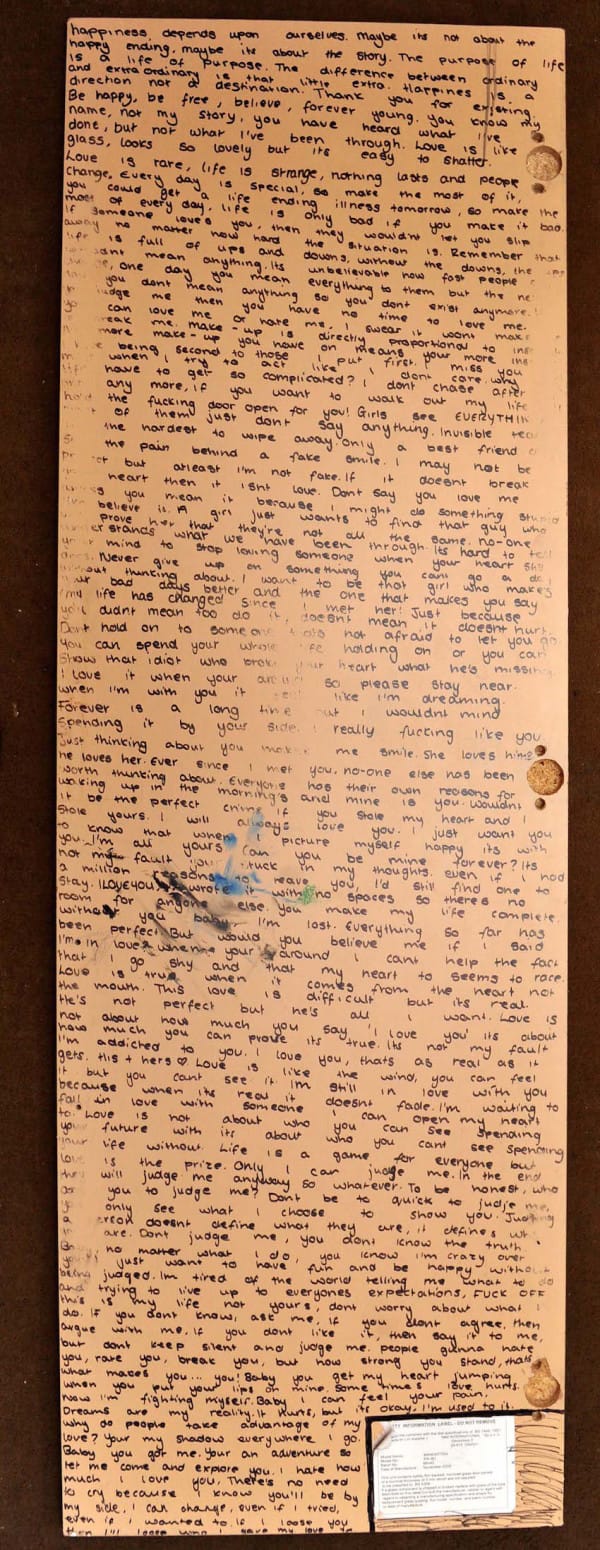 happiness, depends upon ourselves. Maybe its not about the
happy ending, maybe its about the story. The purpose of life
is a life of purpose. The difference between ordinary
and extraordinary is that little extra. Happines is a
direction not a destination. Thank you for existing.
Be happy, be free, believe, forever young. You know my
name, not my story, you have heard what I've
done, but not what I've been through. Love is like
glass, looks so lovely but its easy to shatter.
Love is rare, life is strange, nothing lasts and people
change. Every day is special, so make the most of it,
you could get a life ending illness tomorrow, so make the
most of every day. Life is only bad if you make it bad.
If someone loves you, then they wouldnt let you slip
away no matter how hard the situation is. Remember that
life is full of ups and downs, without the downs, the ups
mean anything. Its unbelievable how fast people
one day you mean everything to them but the
you dont mean anything so you dont exist anymore.
judge me then you have no time to love me.
can love me or hate me, I swear it wont
me. make-up is directly proportional to
more make-up you have on means your more
being second to those I put first. I miss you
when I try to act like I dont care. why
have to get so complicated? I dont chase after
any more, if you want to walk out my life
the fucking door open for you! Girls see
of them just dont say anything. Invisible
the hardest to wipe away. Only a best friend
the pain behind a fake smile. I may not be
but atleast I'm not fake. If it doesnt break
heart then it isnt love. Dont say you love me
you mean it because I might do something stupid
believe it. A girl just wants to find that guy who
prove her that they're not all the same. no-one
what we have been through. Its hard to tell
your mind to stop loving someone when your heart
Never give up on something you cant go a day
thinking about. I want to be that girl who makes
bad days better and the one that makes you say
my life has changed since I met her! Just because
you didnt mean too do it, doesnt mean it doesnt hurt.
Dont hold on to someone not afraid to let you go
You can spend your whole holding on or you can
show that idiot who broke your heart what he's missing
I love it when your so please stay near.
when I'm with you it like I'm dreaming.
Forever is a long time but I wouldnt mind
spending it by your side. I really fucking like you
Just thinking about you makes me smile. She loves him &
he loves her. Ever since I met you, no-one else has been
worth thinking about. Everyone has their own reasons for
waking up in the morning's and mine is you. Wouldnt
it be the perfect crime if you stole my heart and I
stole yours. I will always love you. I just want you
to know that when I picture myself happy its with
you. I'm all yours can you be mine forever? Its
not my fault your stuck in my thoughts. even if I had
a million reasons to leave you, I'd still find one to
stay. ILOVEYOU wrote it with no spaces so there no
room for anyone else. You make my life complete.
without you baby I'm lost. Everything so far has
been perfect. But would you believe me if I said
I'm in love? when your around I cant help the fact
that I go shy and that my heart to seems to race.
Love is true when it comes from the heart not
the mouth. This love is difficult but its real.
He's not perfect but he's all I want. Love is
not about how much you say 'I love you' its about
how much you can prove its true. Its not my fault
I'm addicted to you. I love you, thats as real as it
gets. his + hers ♡ Love is like the wind, you can feel
it but you cant see it. I'm still in love with you
because when its real it doesnt fade. I'm waiting to
fall in love with someone I can open my heart
to. Love is not about who you can see spending
your future with its about who you cant see spending
your life without. Life is a game for everyone but
love is the prize. Only I can judge me. In the end
they will judge me anyway so whatever. To be honest, who
you to judge me? Dont be to quick to judje me,
only see what I choose to show you. Judging
a person doesnt define what they are, it defines
are. Dont judge me, you dont know the truth.
no matter what I do, you know I'm crazy over
you. I just want to have fun and be happy without
being judged. Im tired of the world telling me what to do
and trying to live up to everyones expectations, FUCK OFF
this is my life not yours, dont worry about what I
do. If you dont know, ask me, if you dont agree, then
argue with me. If you dont like it, then say it to me,
but dont keep silent and judge me. people gunna hate
you, rate you, break you, but how strong you stand, thats
what makes you... you! Baby you get my heart jumping
when you put your lips on mine. Sometimes love hurts.
now I'm fighting myself. Baby I can feel your pain.
Dreams are my reality. It hurts, but its okay. I'm used to it.
why do people take advantage of my
love? Your my shadow everywhere I go.
Baby you got me. Your an adventure so
let me come and explore you. I hate how
much I love you. There's no need
to cry because I know you'll be by
my side, I can change, even if I tried,
even if I wanted to. If I loose you
then I'll loose who I gave my love to
SAFETY INFORMATION LABEL - DO NOT REMOVE